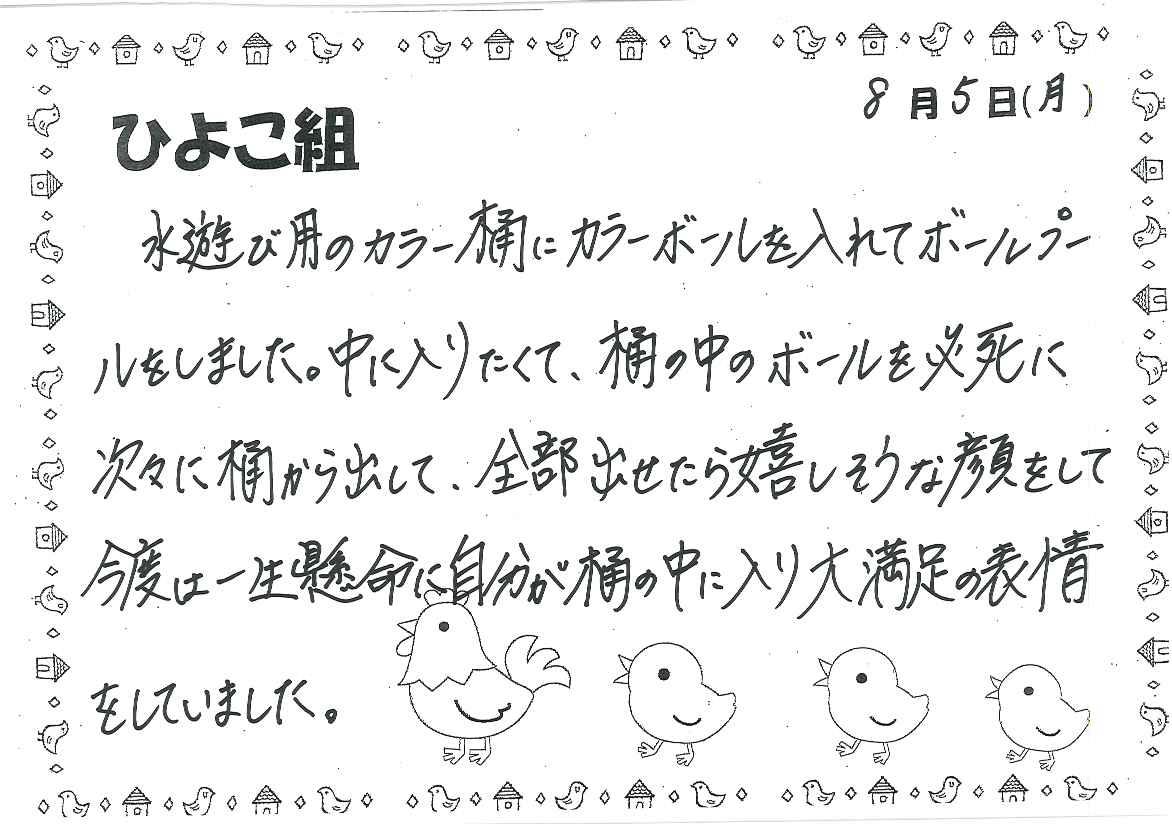 8月5日(月)
ひよこ組
水遊び用のカラー桶にカラーボールを入れてボールプー
ルをしました。中に入りたくて、桶の中のボールを必死に
次々に桶から出して、全部出せたら嬉しそうな顔をして
今度は一生懸命に自分が桶の中に入り大満足の表情
をしていました。